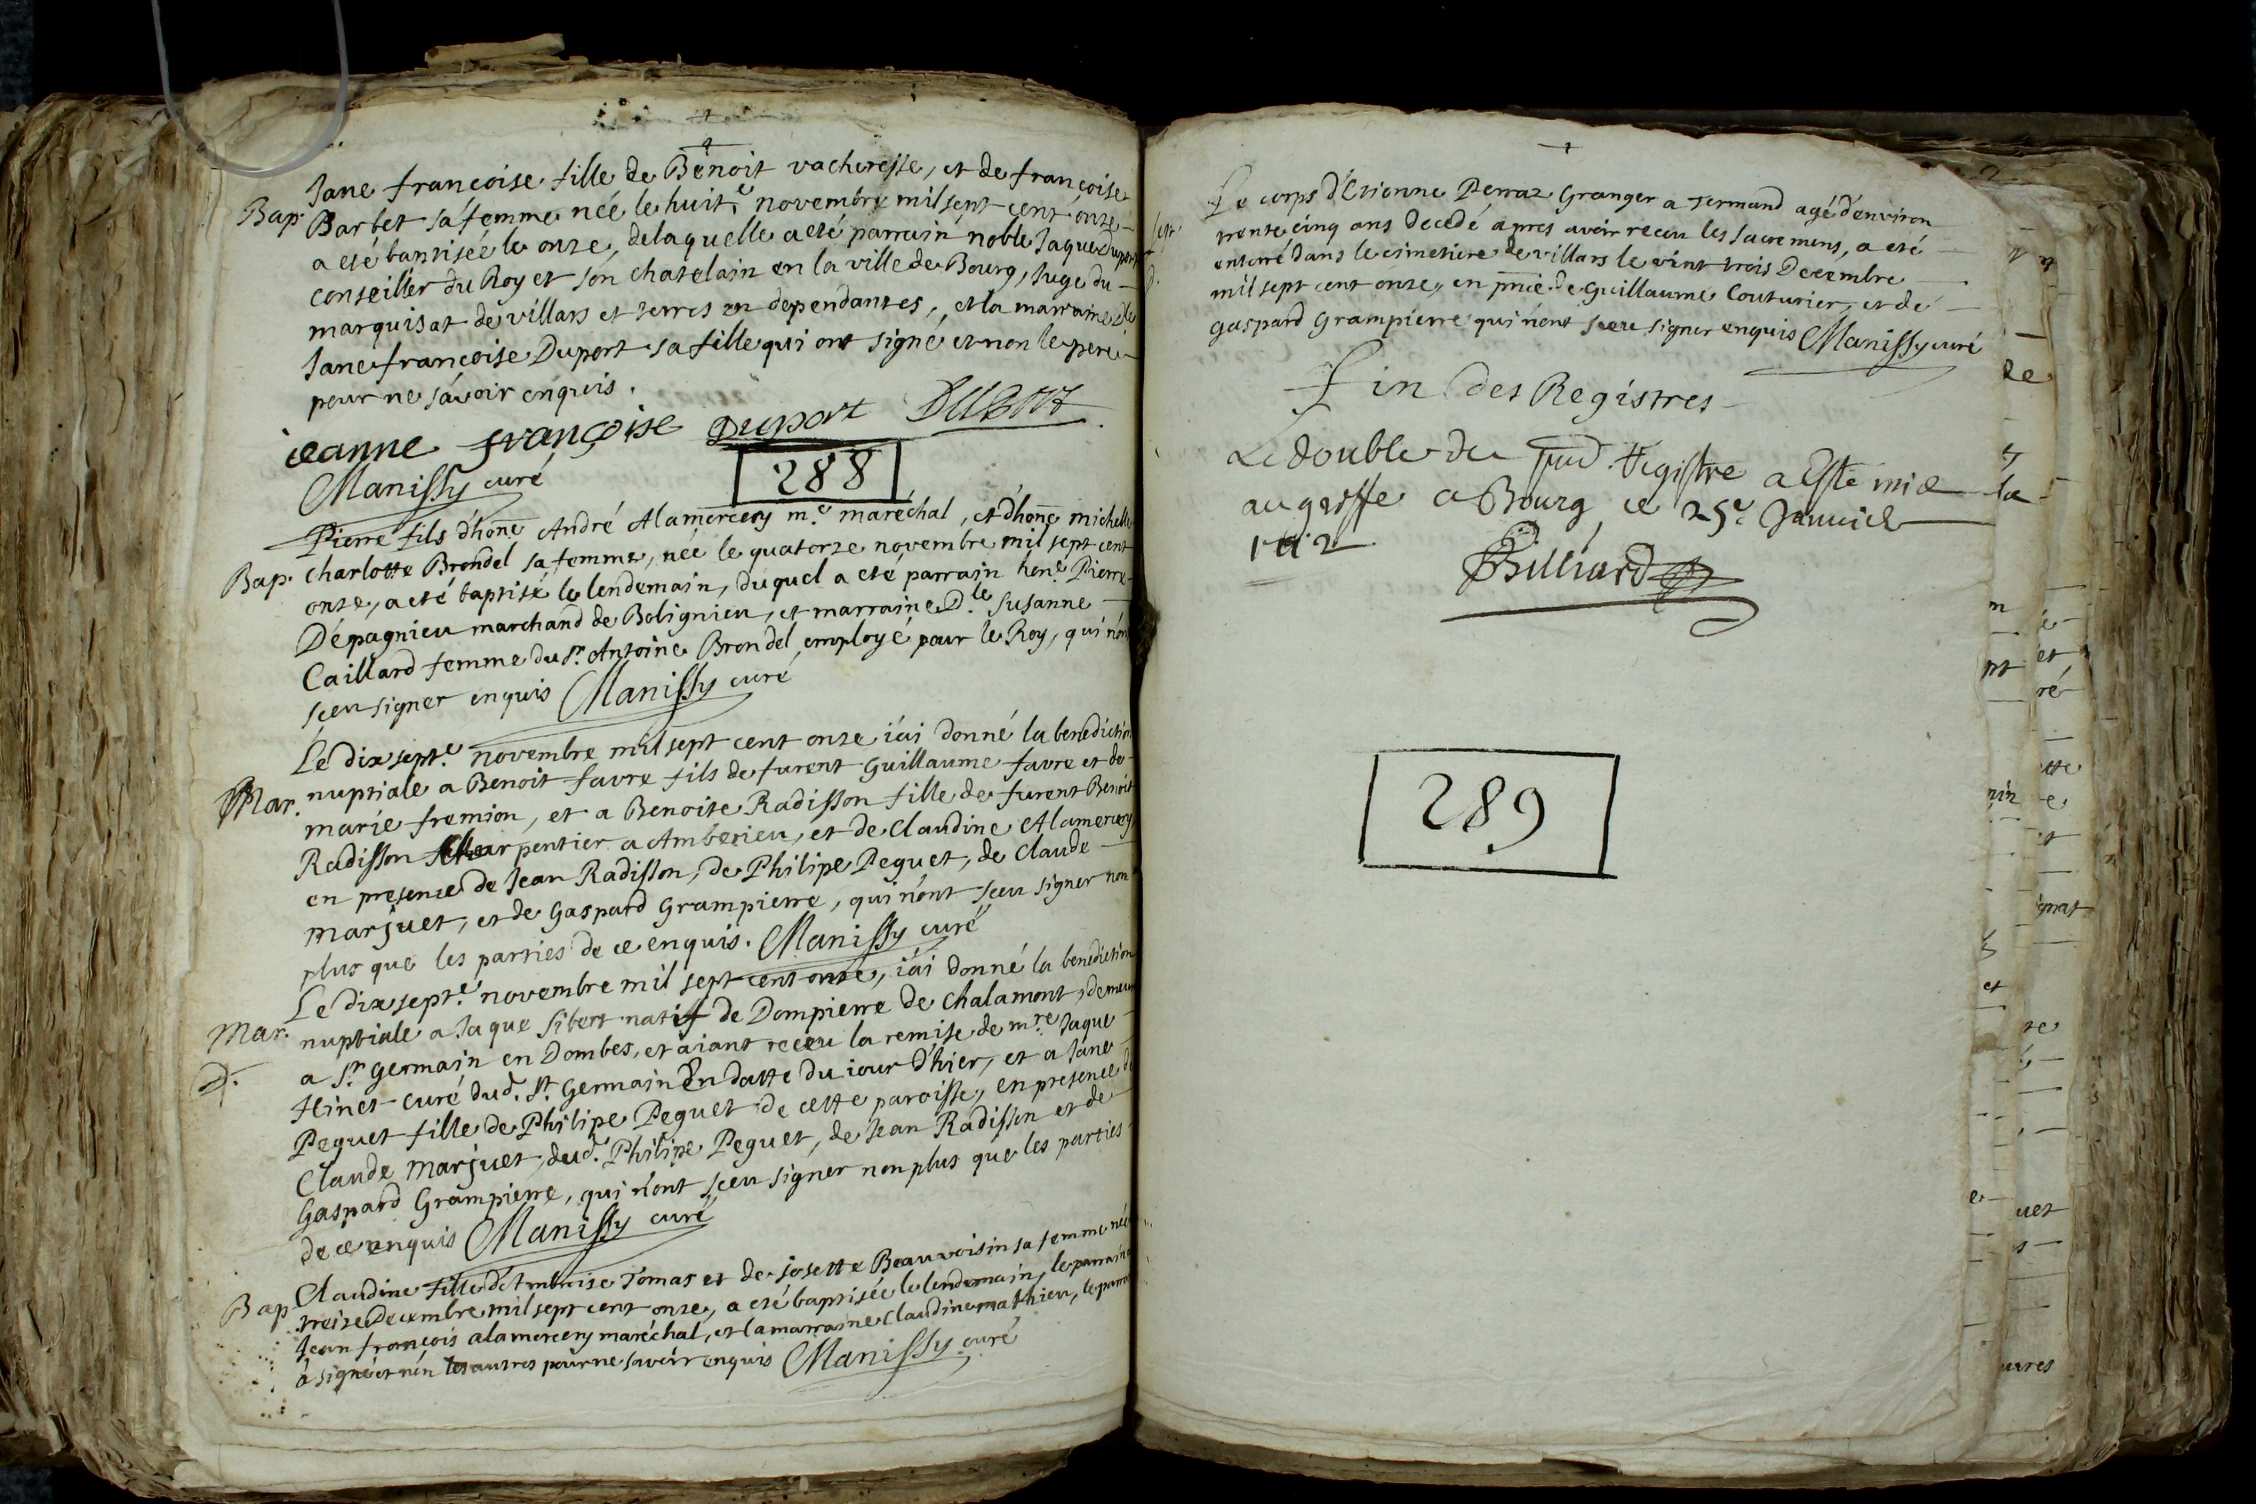 Jane françoise fille de Benoit vacheresse, et de françoise
Bap. Barbet sa femme née le huit.e novembre mil sept cent onze
a eté baptisée le onze, delaquelle a eté parrain noble Jaque Duport
conseiller du Roy et son chatelain en la ville de Bourg, Juge du
marquisat de villars et terres en dependantes, et la marraine Dle
Jane françoise Duport sa fille qui ont signé et non le pere
pour ne savoir enquis.
jeanne françoise Duport Duport
Manissy curé
288
Pierre fils d'hone André Alamercery m.e maréchal, et d'hone michelle
Bap. charlotte Brondel sa femme, née le quatorze novembre mil sept cent
onze, a eté baptisé le lendemain, duquel a eté parrain hon.e Pierre
Dépagnieu marchand de Bolignieu, et marraine D.le Susanne
Caillard femme du sr. Antoine Brondel employé pour le Roy, qui n'ont
sceu signer enquis Manissy curé
Le dix sept.e novembre mil sept cent onze i'ai donné la benediction
Mar. nuptiale a Benoit favre fils de furent Guillaume favre et de
marie fremion, et a Benoite Radisson fille de furent Benoit
Radisson charpentier a Amberieu, et de Claudine Alamercery
en presence de Jean Radisson, de Philipe Peguet, de Claude
marjuet, et de Gaspard Grampierre, qui n'ont sceu signer non
plus que les parties de ce enquis. Manissy curé
Le dix sept.e novembre mil sept cent onze, i'ai donné la benediction
Mar. nuptiale a Jaque Sibert natif de Dompierre de chalamont, demeurt
a St. germain en Dombes, et aiant receu la remise de mre Jaque
Hinet curé dud. St. Germain En datte du iour d'hier, et a Jane
Peguet fille de Philipe Peguet de cette paroisse, en presence de
Claude Marjuet, dud. Philipe Peguet, de Jean Radisson et de
Gaspard Grampierre, qui n'ont sceu signer non plus que les parties
de ce enquis Manissy curé
Claudine fille d'Ambroise Tomas et de josette Beauvoisin sa femme née
Bap. treize Decembre mil sept cent onze, a eté baptisée le lendemain, le parrain
Jean françois alamercery maréchal, et la marraine Claudine mathieu, le parrain
a signé et non les autres pour ne savoir enquis Manissy curé
Le corps d'Etienne Perraz Granger a termand agé d'environ
trente cinq ans decedé apres avoir receu les sacremens, a eté
enterré dans le cimetiere de villars le vint trois Decembre
mil sept cent onze, en pnce de Guillaume Couturier, et de
gaspard Grampierre qui n'ont sceu signer enquis Manissy curé
Fin des Registres
Le double du pnt Registre a Esté mis
au greffe a Bourg ce 25e Janvier
1712
Billiard
289